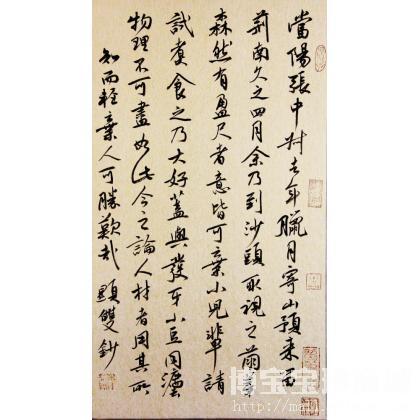 當陽張中叔去年臘月寄山預來留
荊南久之四月余乃到沙頭取視之萌芽
森然有盈尺者意皆可棄小兒輩請
試煮食之乃大好蓋與發牙小豆同灋
物理不可盡如此今之論人材者用其所
知而輕棄人可勝歎哉 顯雙鈔